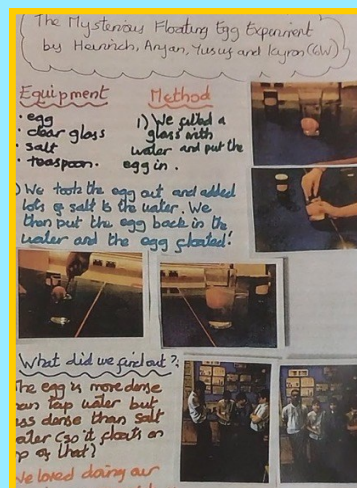 The Mysterious Floating Egg Experiment
by Heinrich, Anyan, Yusuf and Kyron (6W)
Equipment
• egg
• clear glass
• salt
• teaspoon.
Method
1) We filled a
glass with
water and put the
egg in.
) We took the egg out and added
lots of salt to the water. We
then put the egg back in the
water and the egg floated!
What did we find out?
he egg is more dense
han tap water but
ss dense than salt
ater (so it floats on
p of that)
We loved doing our